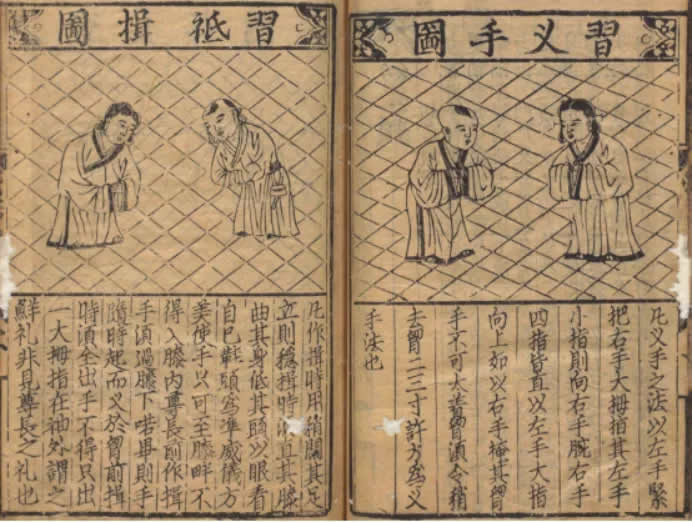 習义手圖
凡义手之法以左手緊
把右手大拇指其左手
小指則向右手腕右手
四指皆直以左手大指
向上如以右手掩其胷
手不可太着胷須令稍
去胷二三寸許方爲义
手法也
習祗揖圖
凡作揖時用稍闊其足
立則穩揖時須直其膝
曲其身低其頭以眼看
自己鞋頭爲準威儀方
美使手只可至膝畔不
得入膝内尊長前作揖
手須過膝下喏畢則手
隨時起而义於胷前揖
時須全出手不得只出
一大拇指在袖外謂之
鮮礼非見尊長之礼也